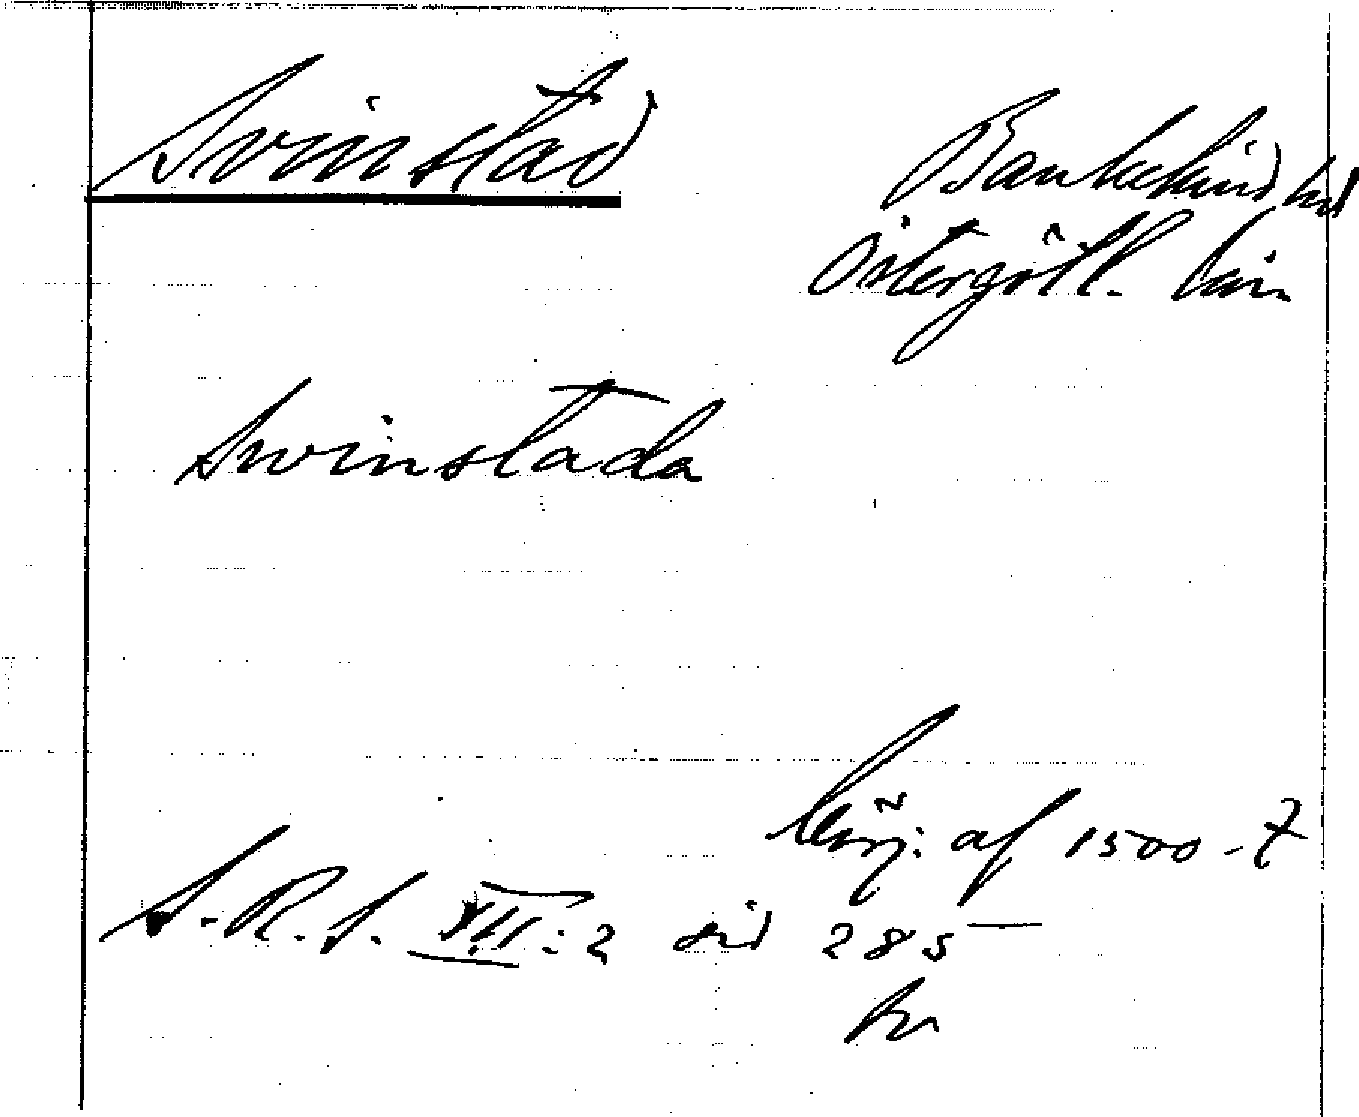 Svinstad
Bankekind hd
Östergötl. län
Swinstada
börj. af 1500-t
S. R. S. III:2 sid 285